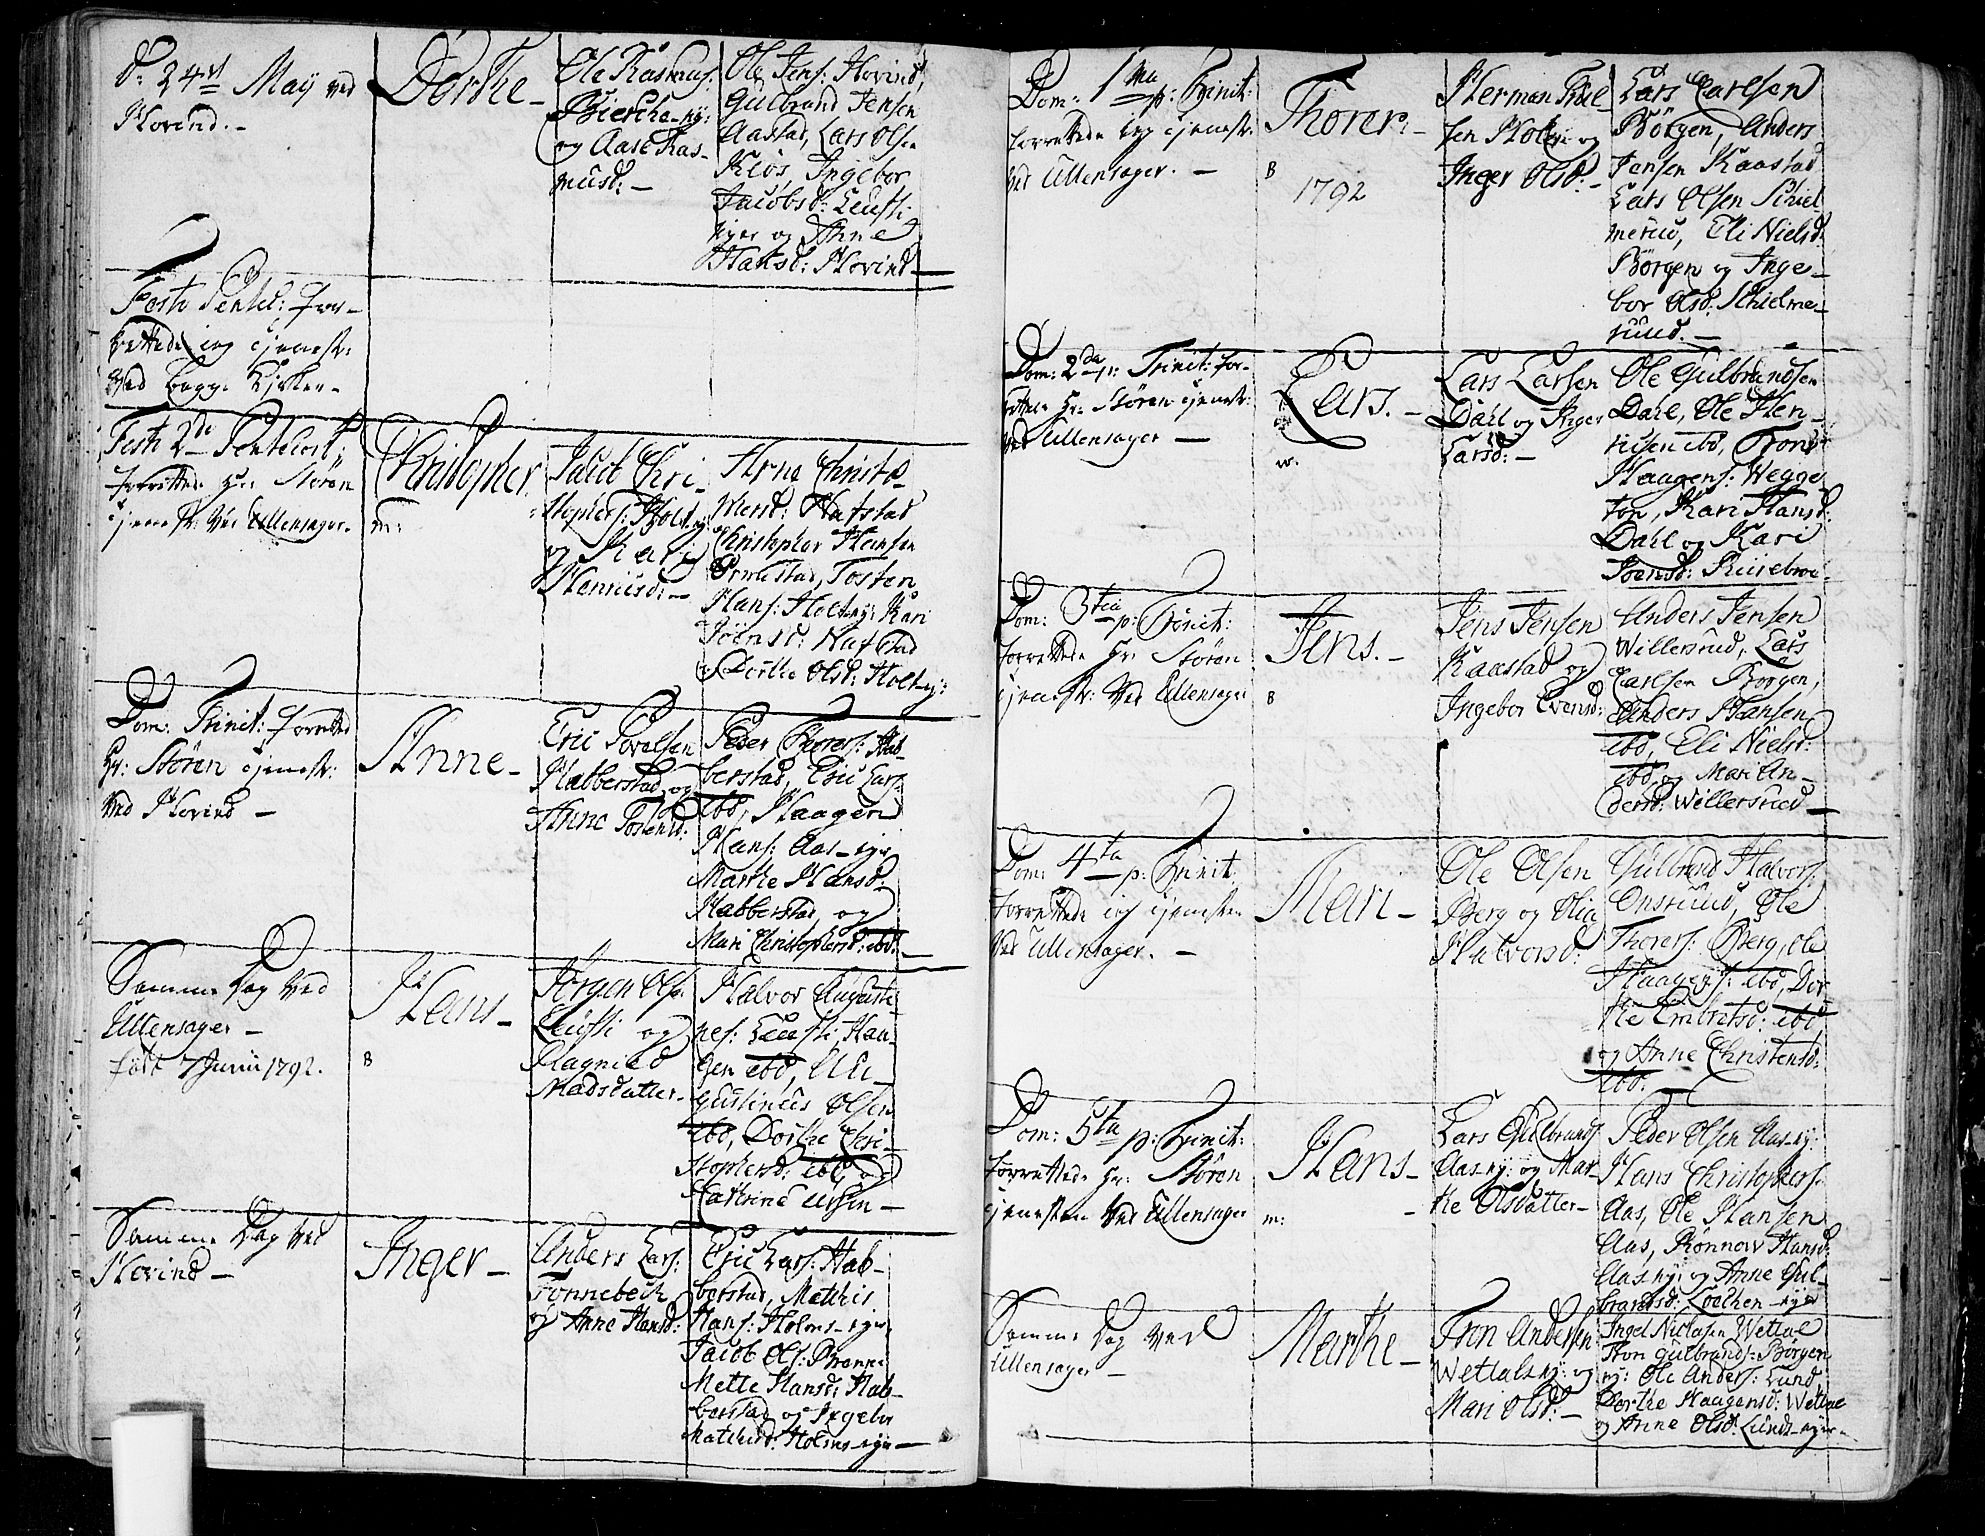 d: 24de May ved
Hovind. -
Dorthe -
Ole Rasmus:
Bierche-ny:
og Aase Ras-
musd: -
Ole Jens: Hovind,
Gulbrand Jensen
Aastad, Lars Olsen
Kiös, Ingebor
Jacobsd:
og Anne
Hansd: Hovind -
Festo Pentec: for-
rettede ieg tjenest:
ved begge Kirker -
Festo 2de Pentecost:
forrettede Hr: Stören
tjenest: ved Ullensager.
Christopher.
m:
Jacob Chri-
stophers: Holt-ny:
og Kari
Henricsd: -
Arne Christo-
phersd: Hafstad
Christopher Hansen
Ormestad, Tosten
Hans: Holt-ny: Kari
Joensd: Hafstad
Dorthe Olsd: Holt-ny:
Dom: Trinit: forrettede
Hr: Stören tjenest:
ved Hovind -
Anne -
Eric Povelsen
Habberstad og
Anne Tostensd:
Peder Thorers: Hab-
berstad, Eric Lars:
ibd, Haagen
Hans: Aas-eyer
Marthe Hansd:
Habberstad, og
Mari Christophersd: ibd: -
Samme Dag ved
Ullensager -
födt 7 Junii 1792.
Hans -
8
Jörgen Ols:
og
Ragnild
Madsdatter -
Halvor Augusti-
nes:
gen ibd, Au-
gustinus Olsen
ibd, Dorthe Chri-
stophersd: ibd, og
Kathrine
Samme Dag ved
Hovind -
Inger -
Anders Lars:
Tonnebech
og Anne Hansd:
Eric Lars: Hab-
berstad, Matthis
Hans: Holms-eyer,
Jacob Ols:
Mette Hansd: Hab-
berstad og Ingebor
Matthisd: Holms-eyer -
Dom: 1ma p: Trinit:
forrettede ieg tjenest:
ved Ullensager. -
Thorer -
8
1792
Herman
sen Holm og
Inger Olsd: -
Lars Carlsen
Börgen, Anders
Jensen Kaastad
Lars Olsen Schiel
merud, Eli Nielsd:
Börgen og Inge-
bor Olsd: Schielme-
ruud. -
Dom: 2da p: Trinit: for-
rettede Hr: Stören tjenest:
ved Ullensager -
Lars. -
Lars Larsen
Dahl og Inger
Larsd: -
Ole Gulbrandsen
Dahl, Ole Hen-
ricsen ibd, Trond
Haagens: Wegge
ton, Kari Hansd:
Dahl og Kari
Dom: 3tia p: Trinit:
forrettede Hr: Stören
tjenest: ved Ullensager
Jens. -
8
Jens Jensen
Kaastad og
Ingebor Evensd:
Anders Jensen
Willersrud, Lars
Carlsen Börgen,
Anders Hansen
ibd, Eli Nielsd:
ibd, og Mari An-
dersd: Willersrud -
Dom: 4ta p: Trinit:
forrettede ieg tjenesten
ved Ullensager. -
Mari -
Ole Olsen
Berg og Olia
Halvorsd:
Gulbrand Halvors:
Onsruud, Ole
Thorers: Berg, Ole
Haagens: ibd, Dor
the Embretsd: ibd,
og Anne Christensd:
ibd: -
Dom: 5ta p: Trinit:
forrettede Hr: Stören
tjenesten ved Ullensager
Hans -
m:
Lars Gulbrands:
Aas-ny: og Mar-
the Olsdatter -
Peder Olsen Aas-ny:
Hans Christophers:
Aas, Ole Hansen
Aas, Rönnow Hansd:
Aas-ny: og Anne Gul-
brandsd: Loechen-eyer
Samme Dag ved
Ullensager -
Marthe -
Tron Andersen
Wettals-ny: og
Mari Olsd: -
Ingel Niclasen Wettal
Tron Gulbrands: Börgen
ny: Ole Anders: Lund
Dorthe Haagensd: Wettal
og Anne Olsd: Lunds-eyer -